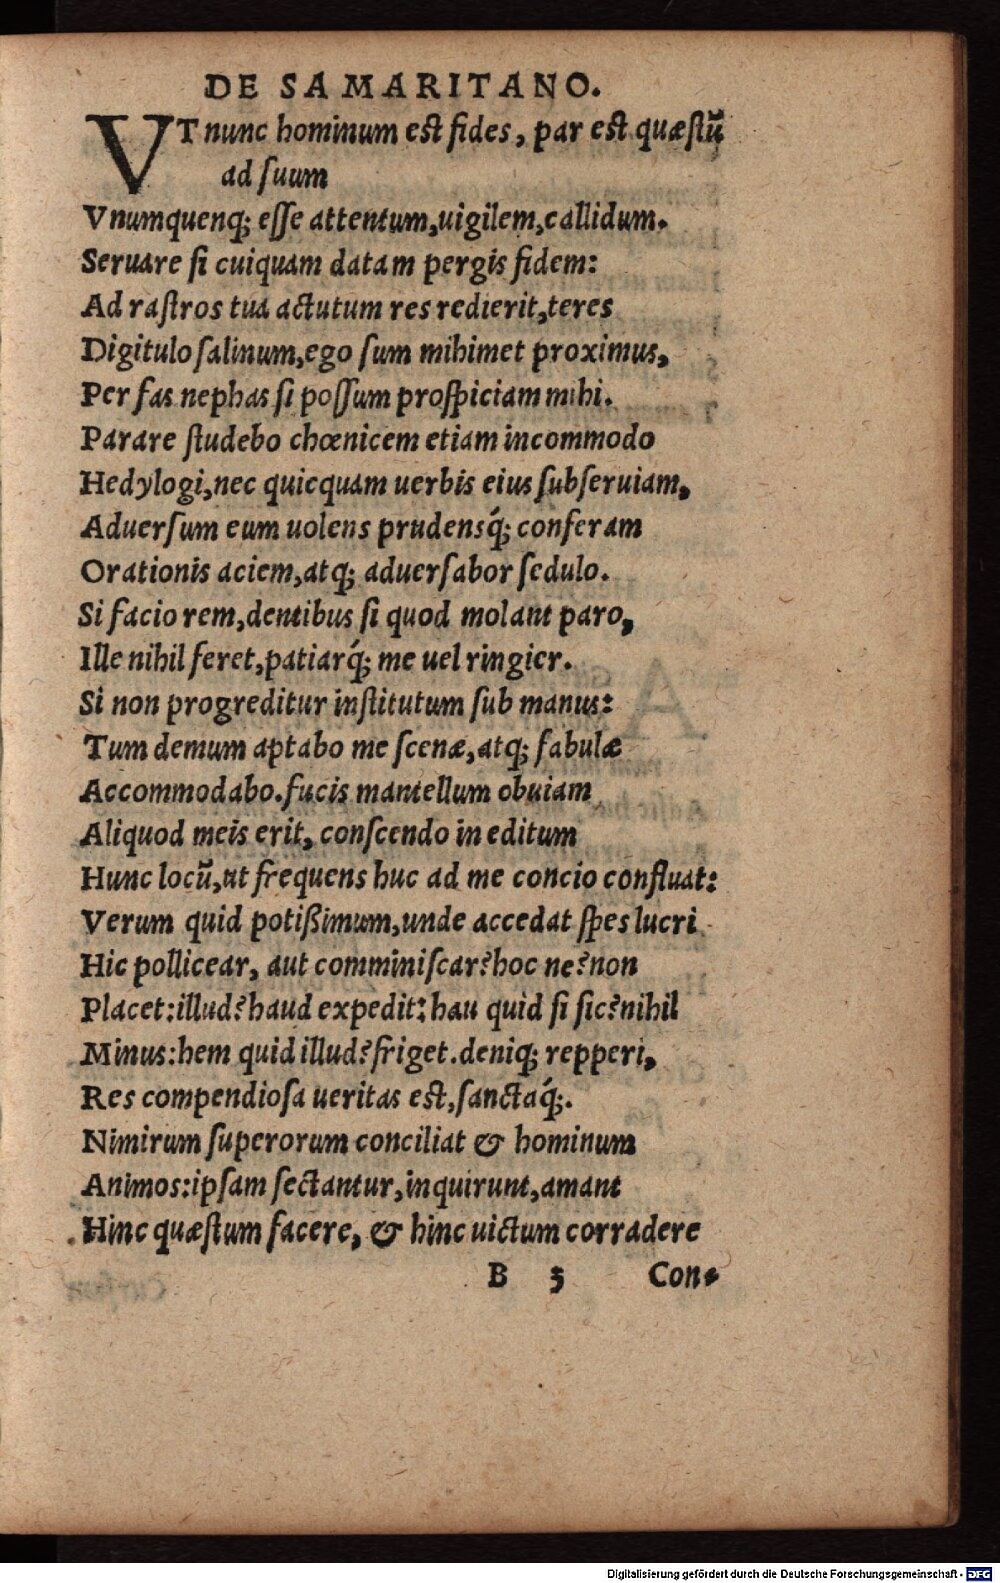 DE SAMARITANO.
VT nunc hominum est fides, par est quæstũ
ad ſuum
Vnumquenq; eſſe attentum, uigilem, callidum.
Seruare ſi cuiquam datam pergis fidem:
Ad raſtros tua actutum res redierit, teres
Digitulo ſalinum, ego ſum mihimet proximus,
Per fas nephas ſi poſſum proſpiciam mihi.
Parare ſtudebo chœnicem etiam incommodo
Hedylogi, nec quicquam uerbis eius ſubſeruiam,
Aduerſum eum uolens prudensq́; conferam
Orationis aciem, atq; aduerſabor ſedulo.
Si facio rem, dentibus ſi quod molant paro,
Ille nihil feret, patiarq́; me uel ringier.
Si non progreditur inſtitutum ſub manus:
Tum demum aptabo me ſcenæ, atq; fabulæ
Accommodabo. fucis mantellum obuiam
Aliquod meis erit, conſcendo in editum
Hunc locũ, ut frequens huc ad me concio confluat:
Verum quid potißimum, unde accedat ſpes lucri
Hic pollicear, aut comminiſcar? hoc ne? non
Placet: illud? haud expedit: hau quid ſi ſic? nihil
Minus: hem quid illud? friget. deniq; repperi,
Res compendioſa ueritas est, ſanctaq́;.
Nimirum ſuperorum conciliat & hominum
Animos: ipſam ſectantur, inquirunt, amant
Hinc quæſtum facere, & hinc uictum corradere
B 3 Con-
Digitalisierung gefördert durch die Deutsche Forschungsgemeinschaft - DFG